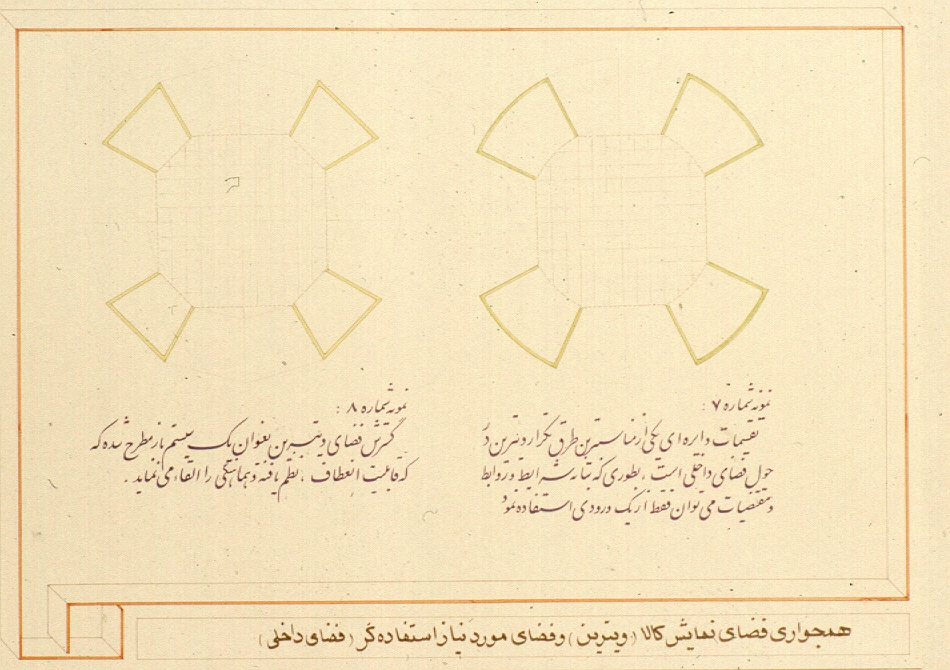 نمونه شماره ۷ :
تقسیمات دایره ای یکی از مناسبترین طرق تکرار ویترین در
حول فضای داخلی است ، بطوری که بنا به شرایط و روابط
و مقتضیات می توان فقط از یک ورودی استفاده نمود
نمونه شماره ۸ :
گسترش فضای ویتیرین بعنوان یک سیستم باز مطرح شده که
که قابلیت انعطاف ، نظم یافته و هماهنگی را القاء می نماید .
همجواری فضای نمایش کالا (ویترین) وفضای مورد نیاز استفاده گر (فضای داخلی)